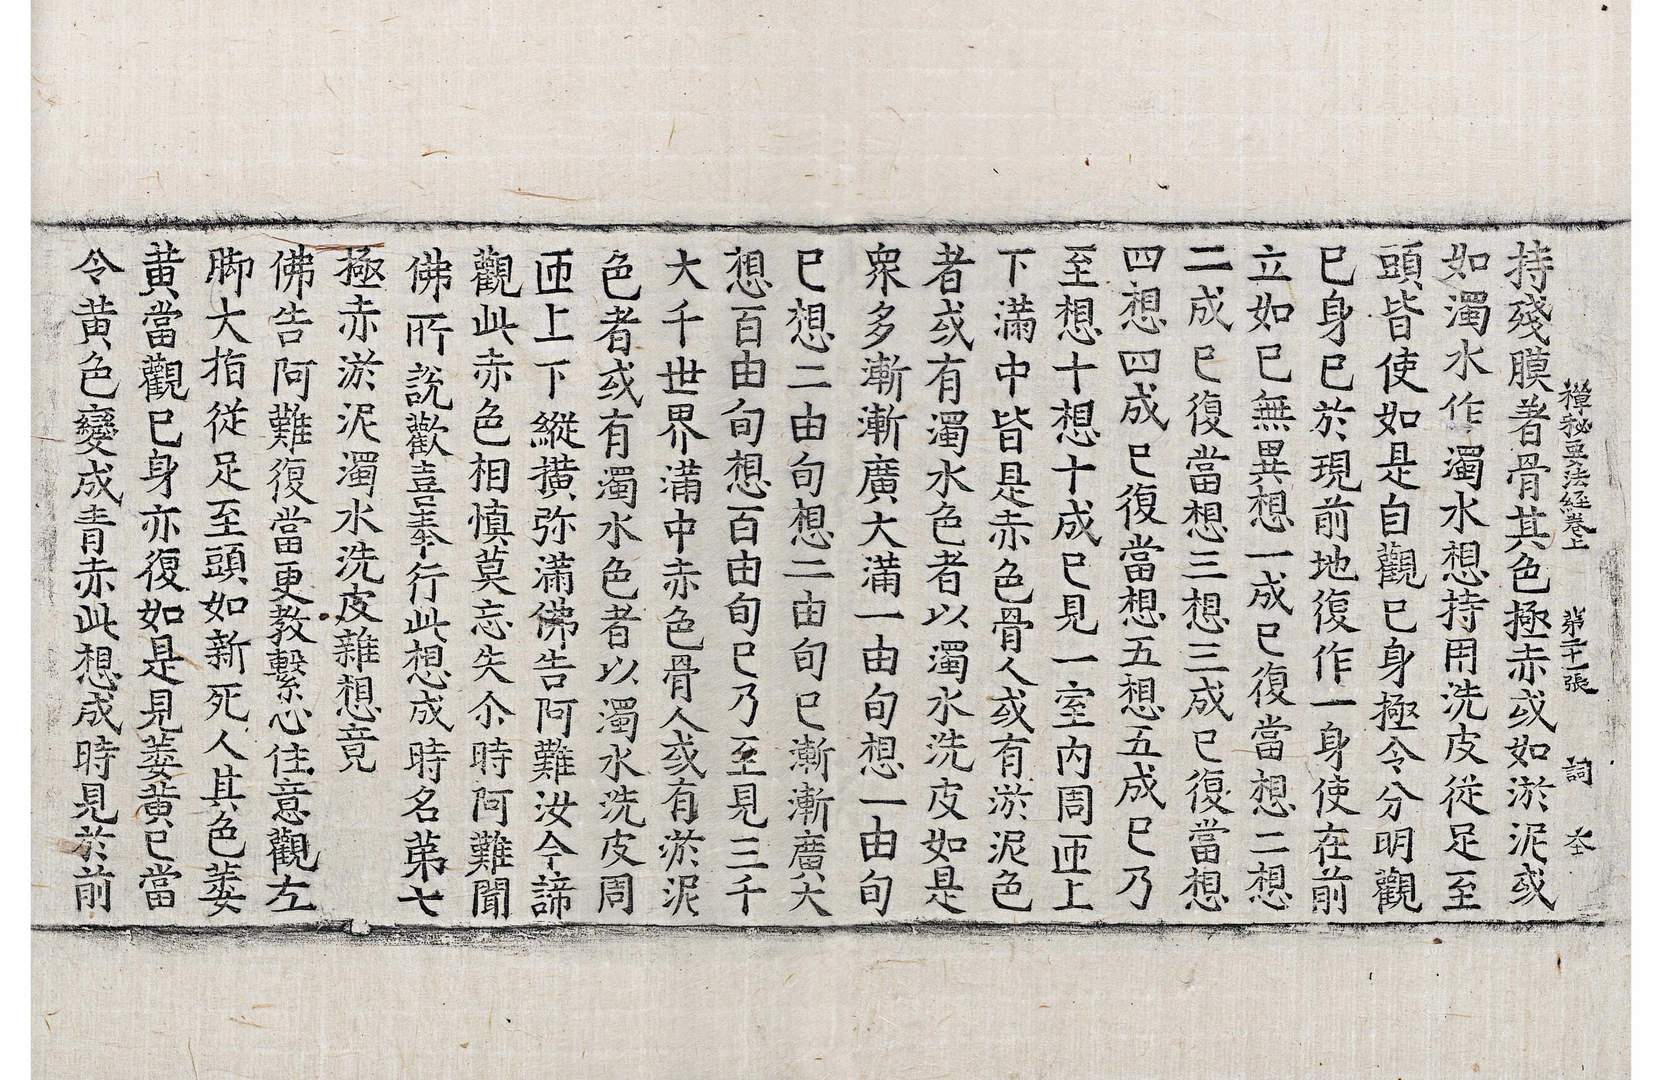 禪秘要法經卷上 第二十一張 詞
持殘膜著骨其色極赤或如淤泥或
如濁水作濁水想持用洗皮從足至
頭皆使如是自觀已身極令分明觀
已身已於現前地復作一身使在前
立如已無異想一成已復當想二想
二成已復當想三想三成已復當想
四想四成已復當想五想五成已乃
至想十想十成已見一室內周匝上
下滿中皆是赤色骨人或有淤泥色
者或有濁水色者以濁水洗皮如是
衆多漸漸廣大滿一由旬想一由旬
已想二由旬想二由旬已漸漸廣大
想百由旬想百由旬已乃至見三千
大千世界滿中赤色骨人或有淤泥
色者或有濁水色者以濁水洗皮周
匝上下縱橫弥滿佛告阿難汝今諦
觀此赤色相慎莫忘失尒時阿難聞
佛所說歡喜奉行此想成時名第七
極赤淤泥濁水洗皮雜想竟
佛告阿難復當更教繫心住意觀左
脚大指從足至頭如新死人其色萎
黃當觀已身亦復如是見萎黃已當
令黃色變成青赤此想成時見於前